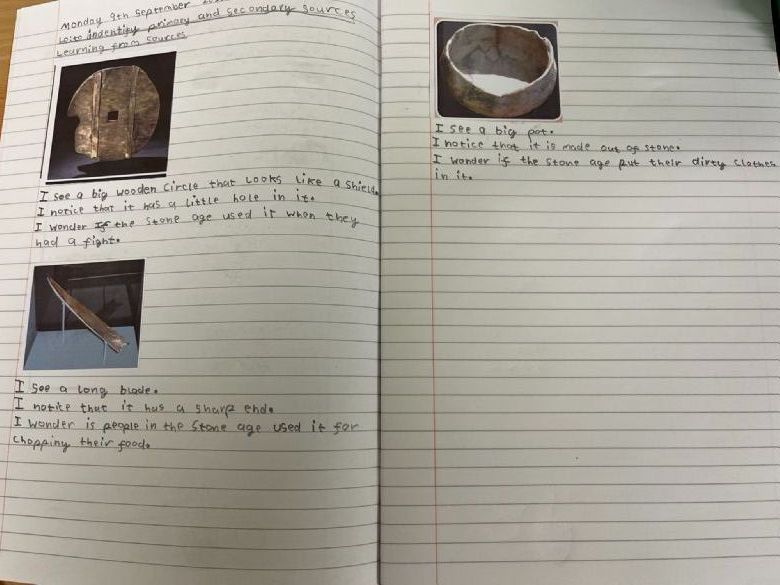 Monday 9th September
LO: to indentify primary and secondary sources
Learning from sources
I see a big wooden circle that looks like a shield.
I notice that it has a little hole in it.
I wonder if the stone age used it when they
had a fight.
I see a long blade.
I notice that it has a sharp end.
I wonder is people in the stone age used it for
chopping their food.
I see a big pot.
I notice that it is made out of stone.
I wonder if the stone age put their dirty clothes
in it.